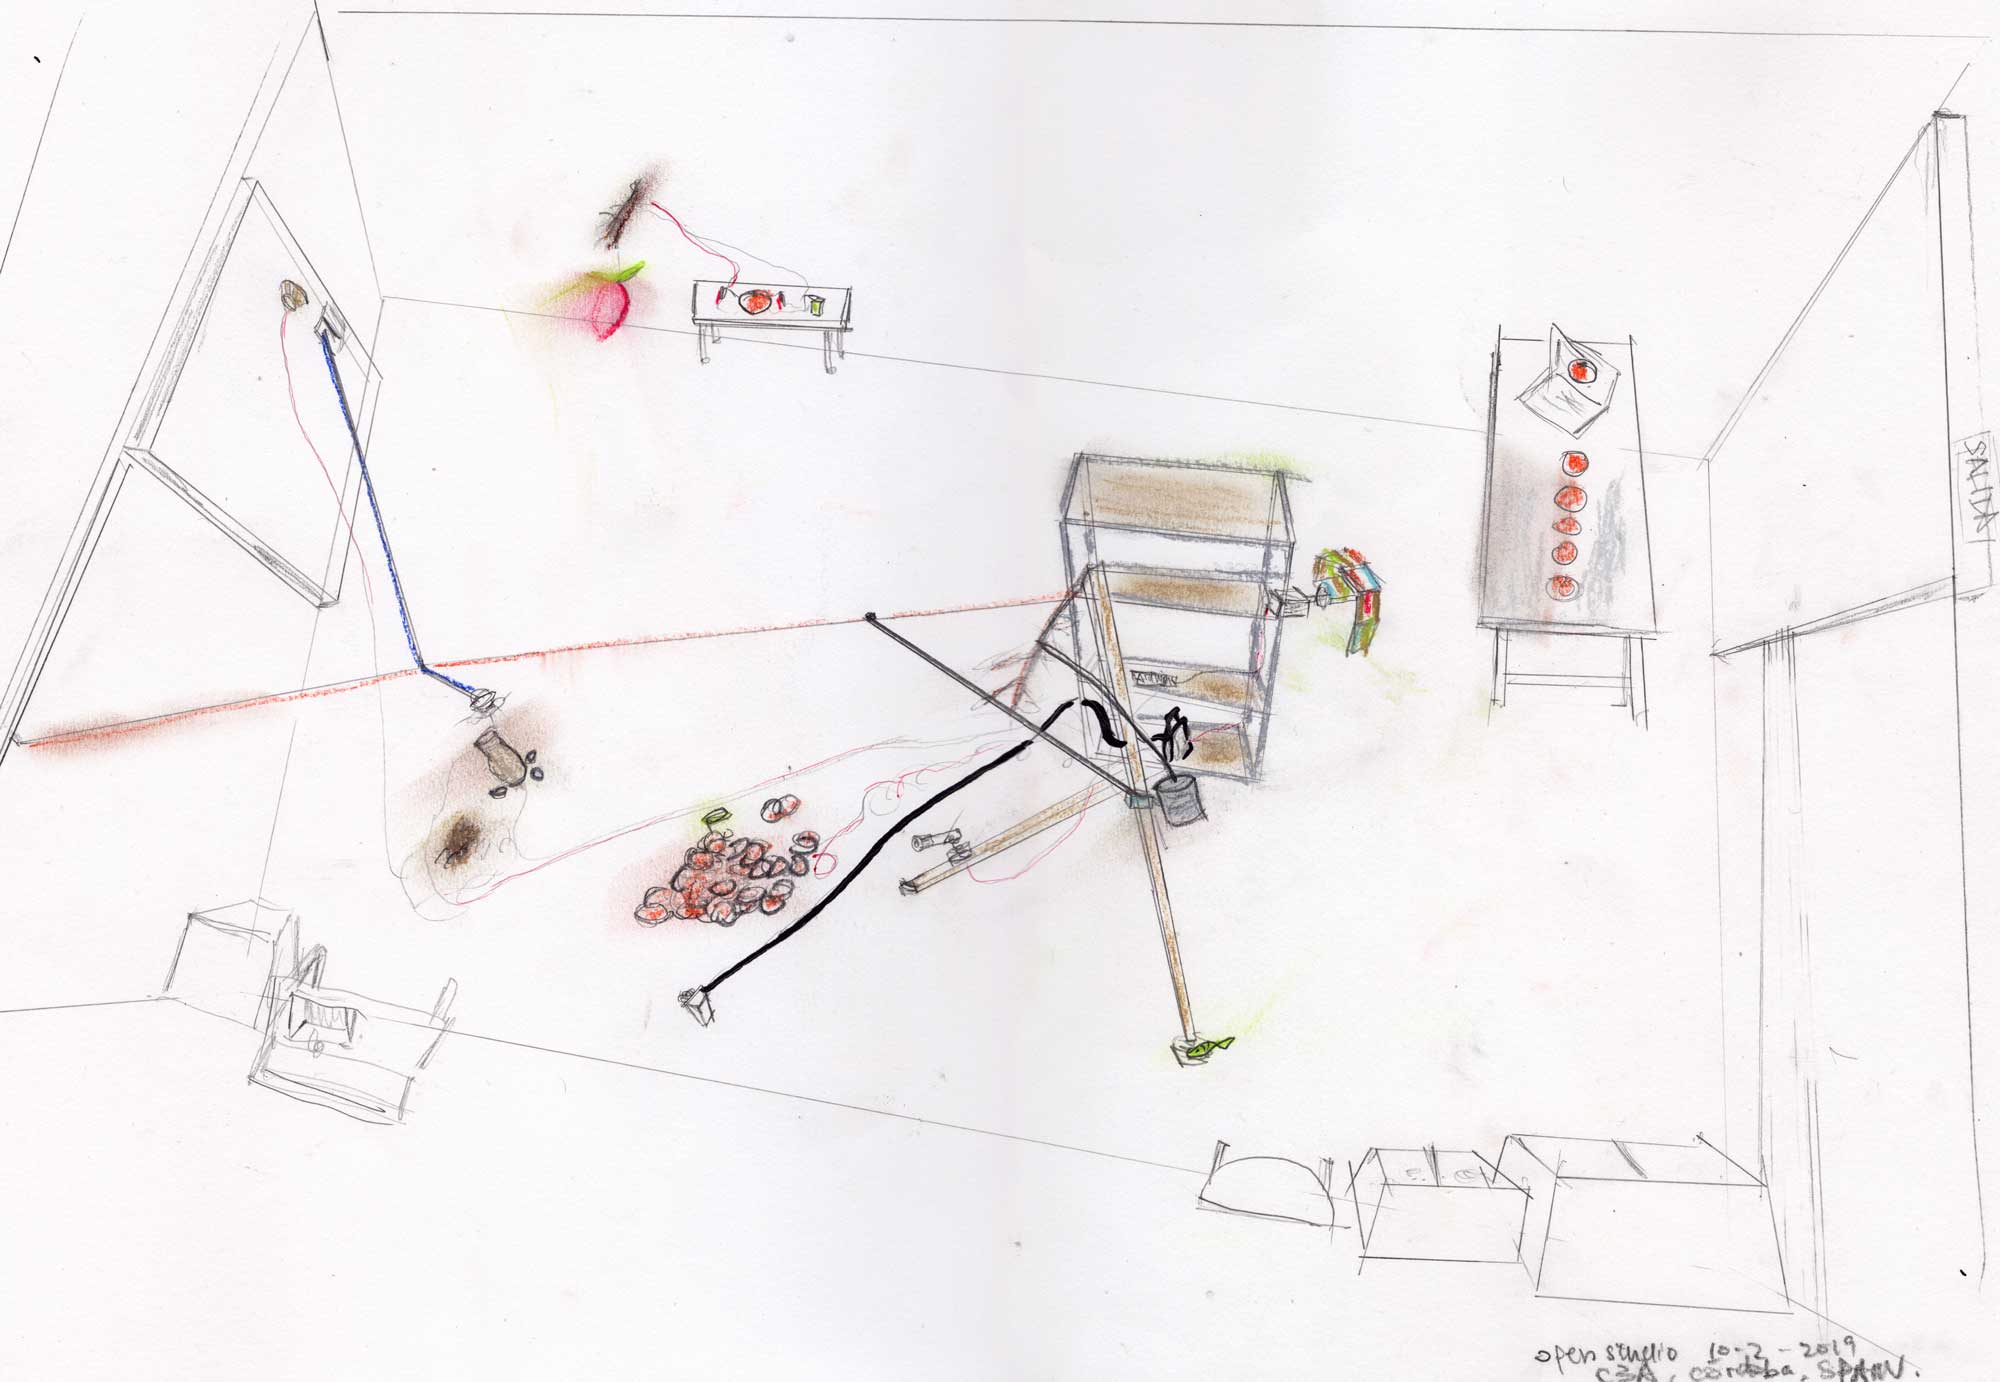 SALIDA
open studio 10-2-2019
C3A, córdoba, SPAIN.